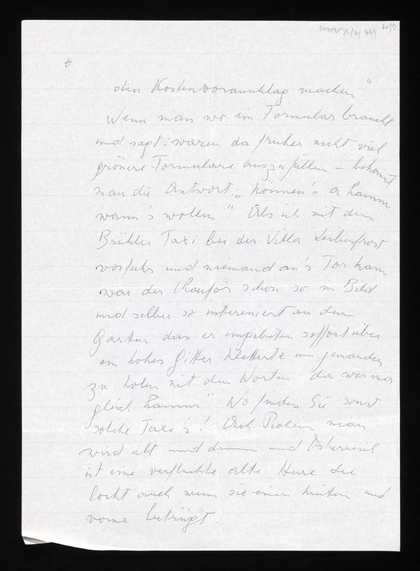 den Kostenvoranschlag machen"
Wenn man wo ein Formular braucht
und sagt: waren da früher nicht viel
grünere Formulare auszufüllen – bekommt
man die Antwort „können's a haben
wann's wollen" Als ich mit dem
Taxi bei der Villa
vorfuhr und niemand an's Tor kam
war der Chauför schon so im Bild
und selber so interessiert an dem
Garten das er sofort über
ein hohes Gitter kletterte um jemanden
zu holen mit den Worten „das wer ma
gleich haben" Wo finden Sie sonst
solche Taxi's! Und man
wird alt und dumm und Österreich
ist eine verfluchte alte Hure die
lockt auch wenn sie einen hinten und
vorne betrügt.